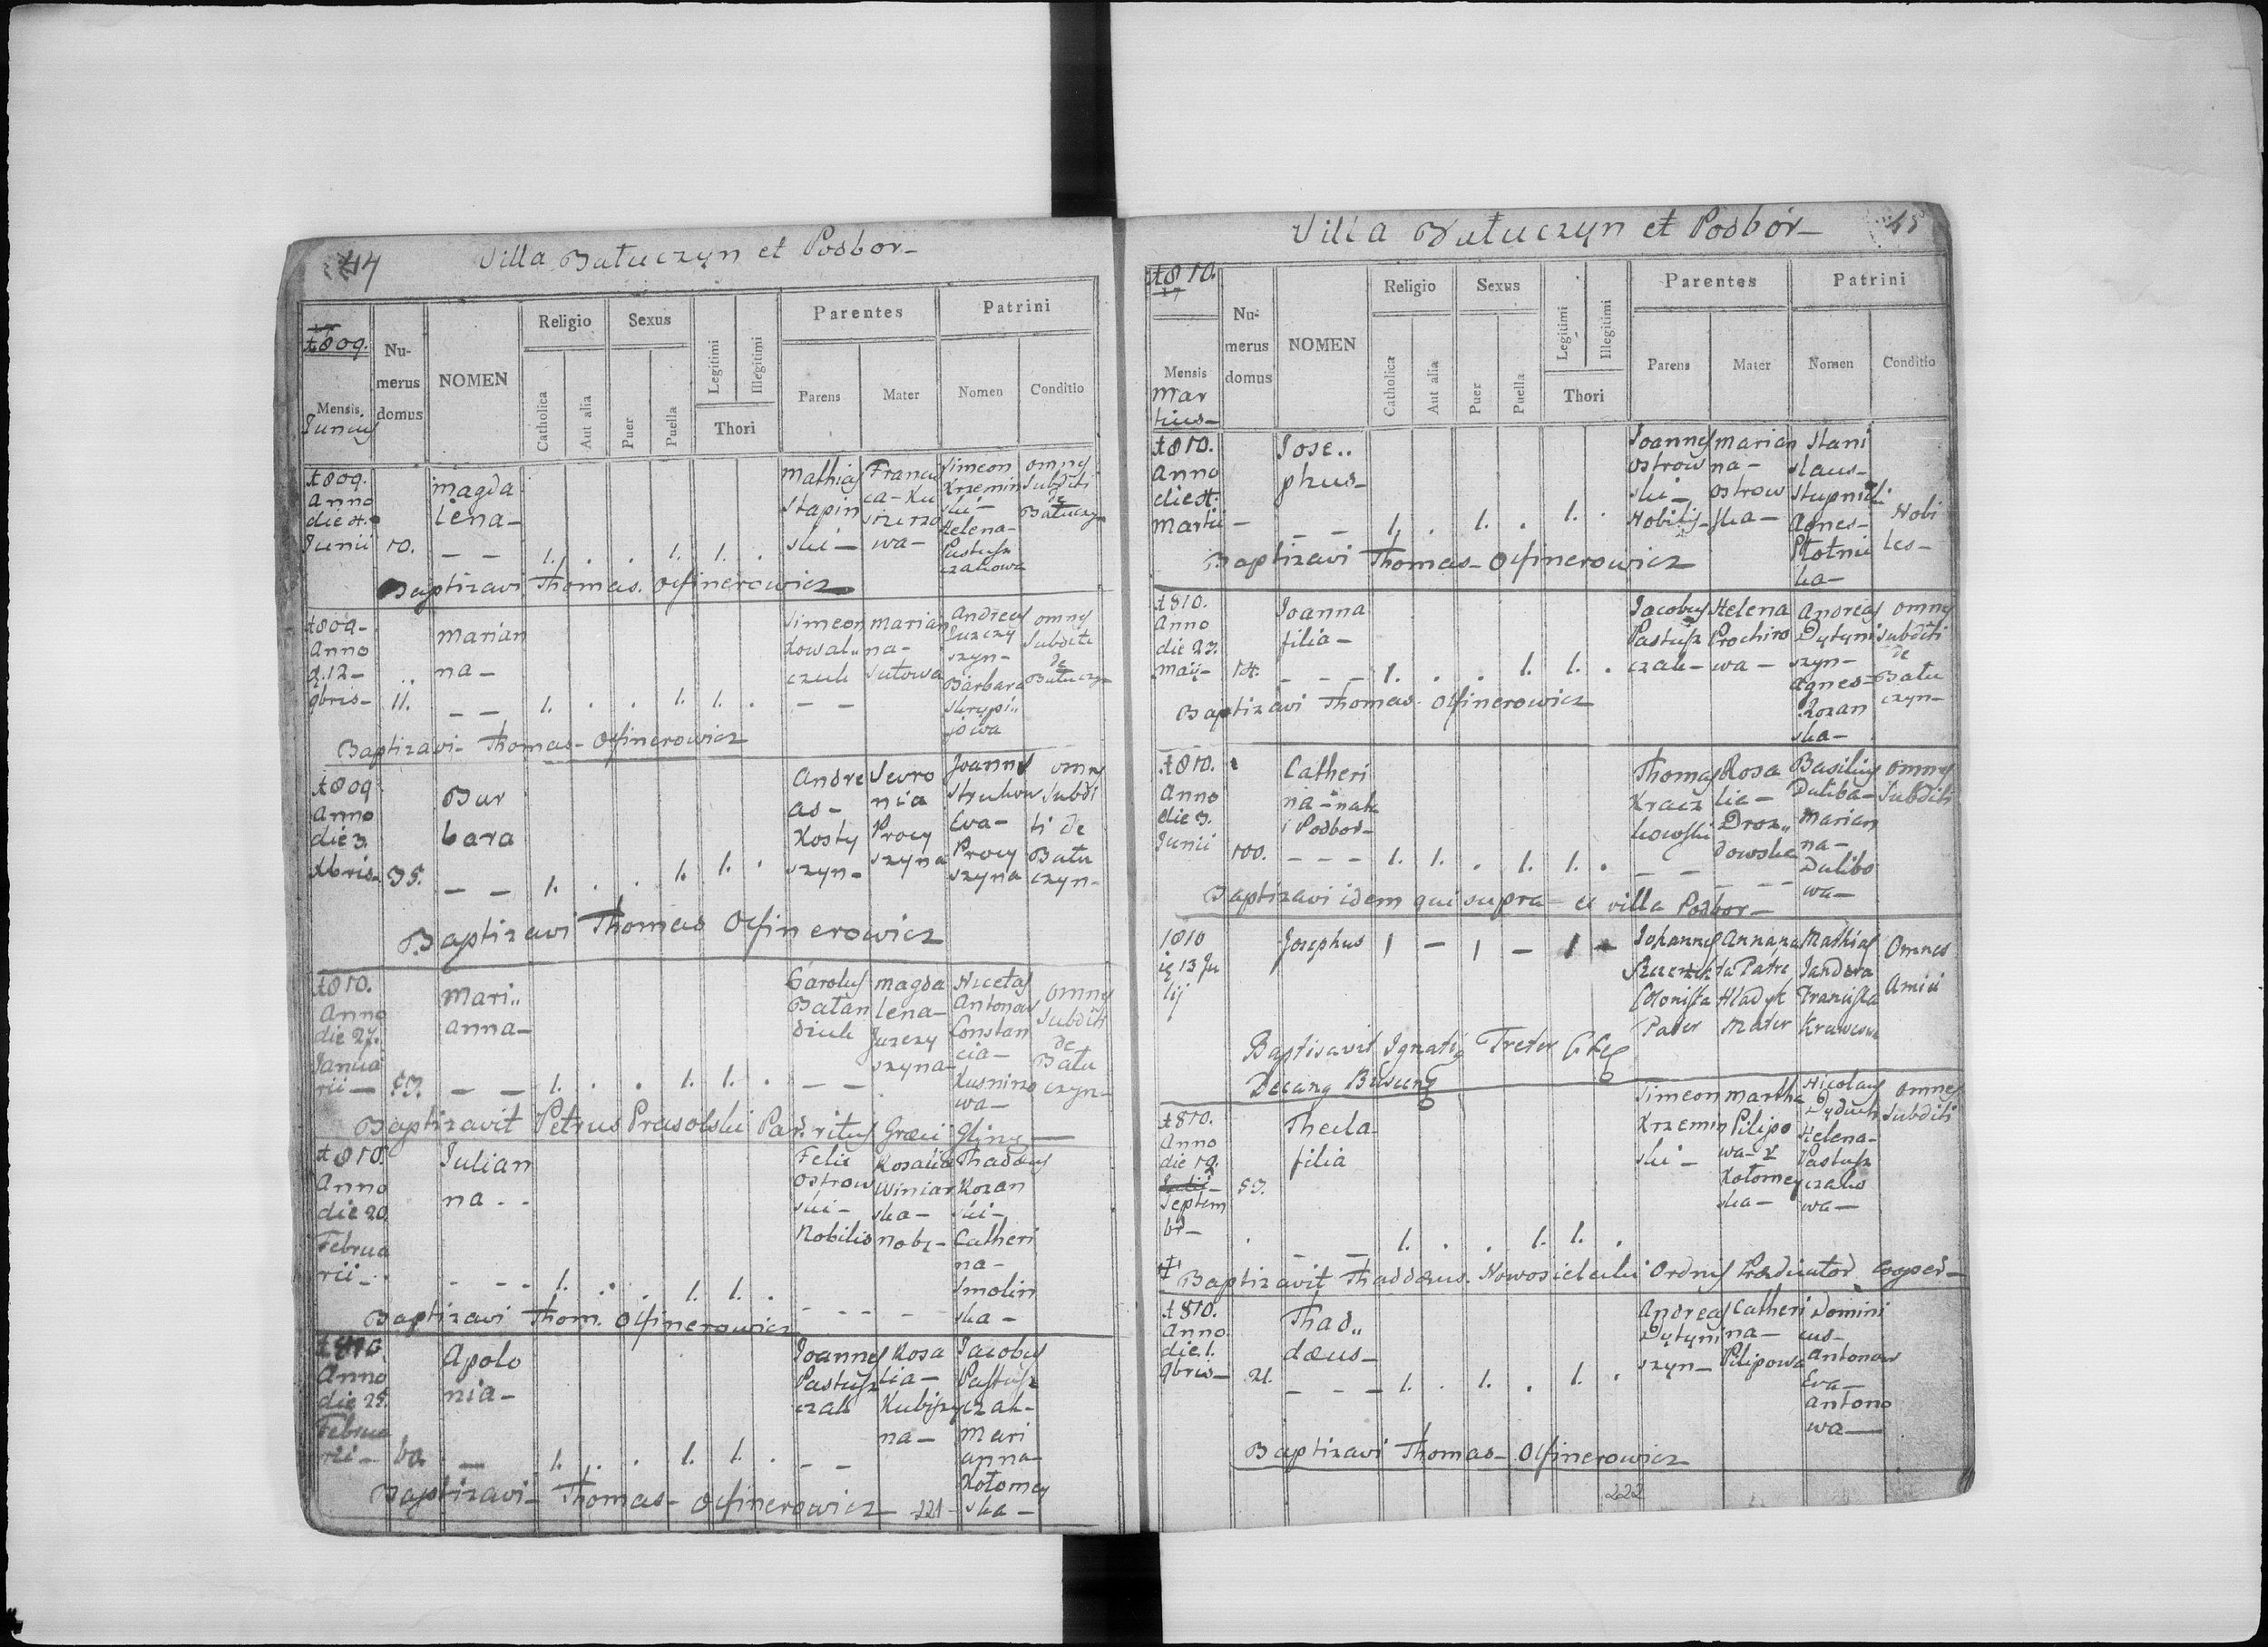 44
Villa Batuczyn et Podbor-
1809.
Mensis
Junius
Nu-
merus
domus
NOMEN
Religio
Catholica
Aut alia
Sexus
Puer
Puella
Legitimi
Illegitimi
Thori
Parentes
Parens
Mater
Patrini
Nomen
Conditio
1809.
Anno
die 4.
Junii
10.
Magda
lena-
1. . . 1. 1. .
Mathias
Stapin
ski-
Francis
ca-Ku
wa-
Simeon
Krzemin
ski-
Helena-
Pastusz
czakowa
omnes
Subditi
de
Batuczyn
Baptizavi Thomas Olfinerowicz
1809-
Anno
d.12-
9bris-
11.
Marian
na-
1. . . 1. 1. .
Simeon
Kowal..
czuk
Marian
na-
Sutowa
Andreas
Jurczy
szyn-
Barbara
Skrypi..
jowa
omnes
Subditi
de
Batuczyn
Baptizavi- Thomas- Olfinerowicz
1809
Anno
die 3.
Xbris-
35.
Bar
bara
1. . . 1. 1. .
Andre
as-
Kosty
szyn-
Sevro
nia
Procy
szyna
Joannes
Struhow
Eva-
Procy
szyna
omnes
Subdi
ti de
Batu
czyn-
Baptizavi Thomas Olfinerowicz
1810.
Anno
die 27.
Janua
rii-
53.
Mari..
anna-
1. . . 1. 1. .
Carolus
Batan
diuk
Magda
lena-
Jurczy
szyna-
Nicetas
Antonow
Constan
cia-
Kusnirzo
wa-
omnes
Subditi
de
Batu
czyn-
Baptizavit Petrus Prasolski Par. ritus Graeci
1810.
Anno
die 20
Februa
rii-
Julian
na--
1. . . 1. 1. .
Felix
Ostrow
ski-
Nobilis
Rosalia
Winiar
ska-
nobi-
Thaddeus
Kozan
ski-
Catheri
na-
Smolin
ska-
Baptizavi Thom. Olfinerowicz
1810.
Anno
die 25.
Februa
rii-
Apolo
nia-
1. . . 1. 1. .
Joannes
Pastusz
czak
Rosa
lia-
Kubiszy
na-
Jacobus
Pastusz
czak-
Mari
anna-
Kotomey
ska-
Baptizavi- Thomas- Olfinerowicz
221
Villa Batuczyn et Podbór-
45
1810.
Mensis
Mar
tius-
Nu-
merus
domus
NOMEN
Religio
Catholica
Aut alia
Sexus
Puer
Puella
Legitimi
Illegitimi
Thori
Parentes
Parens
Mater
Patrini
Nomen
Conditio
1810.
Anno
die 4.
Martii-
Jose..
phus-
1. . 1. . 1. .
Joannes
Ostrow
ski-
Nobilis-
Marian
na-
Ostrow
ska-
Stani
slaus-
Stupnicki
Agnes-
Ptotnic
ka-
Nobi
les-
Baptizavi Thomas- Olfinerowicz
1810.
Anno
die 23.
Maii-
14.
Joanna
filia-
1. . . 1. 1. .
Jacobus
Pastusz
czak-
Helena
Prochiro
wa-
Andreas
Dytyni
szyn-
Agnes-
Kozan
ska-
omnes
Subditi
de
Batu
czyn-
Baptizavi Thomas Olfinerowicz
1810.
Anno
die 3.
Junii
100.
Catheri
na-nata
Podbor-
1. 1. . 1. 1. .
Thomas
Kracz
kowski
Rosa
lia-
Droz..
dowska
Basilius
Duliba-
Marian
na-
Dulibo
wa-
omnes
Subditi
Baptizavi idem qui supra- ex villa Podbor-
1810
13 Ju
lij
Josephus
1 - 1 - 1 -
Johannes
Colonista
Pater
Anna
Patre
Hladyk
Mater
Mathias
Jandera
Omnes
Amici
Baptisavit Ignatius Treter
Decanus
1810.
Anno
die 19.
Septem
br-
53.
Thecla
filia
1. . . 1. 1. .
Simeon
Krzemin
ski-
Martha
Pilipo
wa-
Kotomey
ska-
Nicolaus
Dyduch
Helena-
Pastusz
czako
wa-
omnes
Subditi
Baptizavit Thaddæus Nowosieleski Ordinis Prædicator Cooper-
1810.
Anno
die 1.
9bris-
21.
Thad..
dæus-
1. . 1. . 1. .
Andreas
Dytyni
szyn-
Catheri
na-
Pilipowa
Domini
cus-
Antonow
Eva-
Antono
wa-
Baptizavi Thomas- Olfinerowicz
222